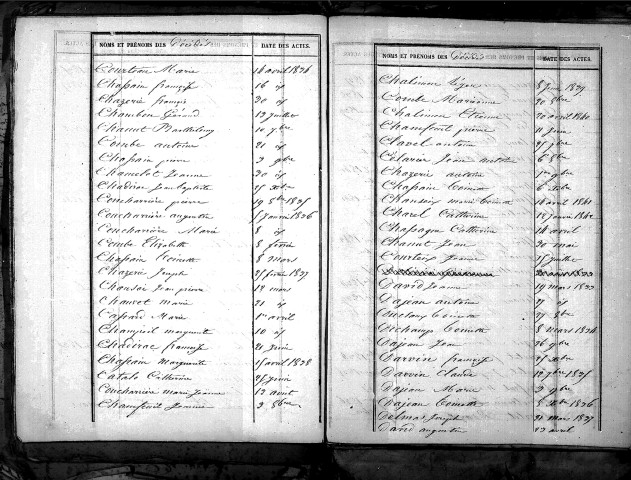 NOMS ET PRÉNOMS DES Décédés DATE DES ACTES.
Courtine Marie 16 avril 1836
Chapain françois 16 id
Chazerie françois 20 id
Chambon Géraud 12 juillet
Chanut Barthelemy 10 7bre
Combe antoine 21 id
Chapain pierre 2 9bre
Chamelot Jeanne 20 id
Chadirac Jean Baptiste
Coucharrière pierre 19 8bre 1835
Coucharrière augustin 5 janvier 1836
Coucharrière Marie 8 id
Combe Elizabeth 8 février
Chapain Toinette 8 mars
Chazerie Joseph 25 février 1837
Chansée Jean pierre 12 mars
Chauvet marie 21 id
Capard Marie 1er avril
Champeil marguerite 10 id
Chadirac françoise 21 juin
Chapain marguerite 15 avril 1838
Catalo Catherine 25 juin
Coucharrière marie Jeanne 12 août
Chamfeuil Jeanne 2 8bre
NOMS ET PRÉNOMS DES Décédés DATE DES ACTES.
Chalimon Léger 5 juin 1839
Combe Marianne 20 8bre
Chalimon Etienne 20 avril 1840
Chamfeuil pierre 11 juin
Clavel antoine 25 7bre
Célarier Jean antoine 6 8bre
Chazerie antoine 1er 9bre
Chapain Toinette 6 Xbre
Chansées marie Toinette 16 avril 1841
Charel Catherine 18 janvier 1842
Chassagne Catherine 16 avril
Chanut Jean 20 mai
Courteix Jeanne 15 juillet
David Jeanne 19 mars 1833
Dajean antoine 17 id
Duclaux Toinette 27 8bre
Dechamps Toinette 8 mars 1834
Dajean Jean 26 9bre
Darvin françois 25 Xbre
Darvin Claude 12 7bre 1835
Dajean Marie 2 9bre
Dajean Toinette 8 Xbre 1836
Delmas Joseph 21 mars 1837
David augustin 12 avril